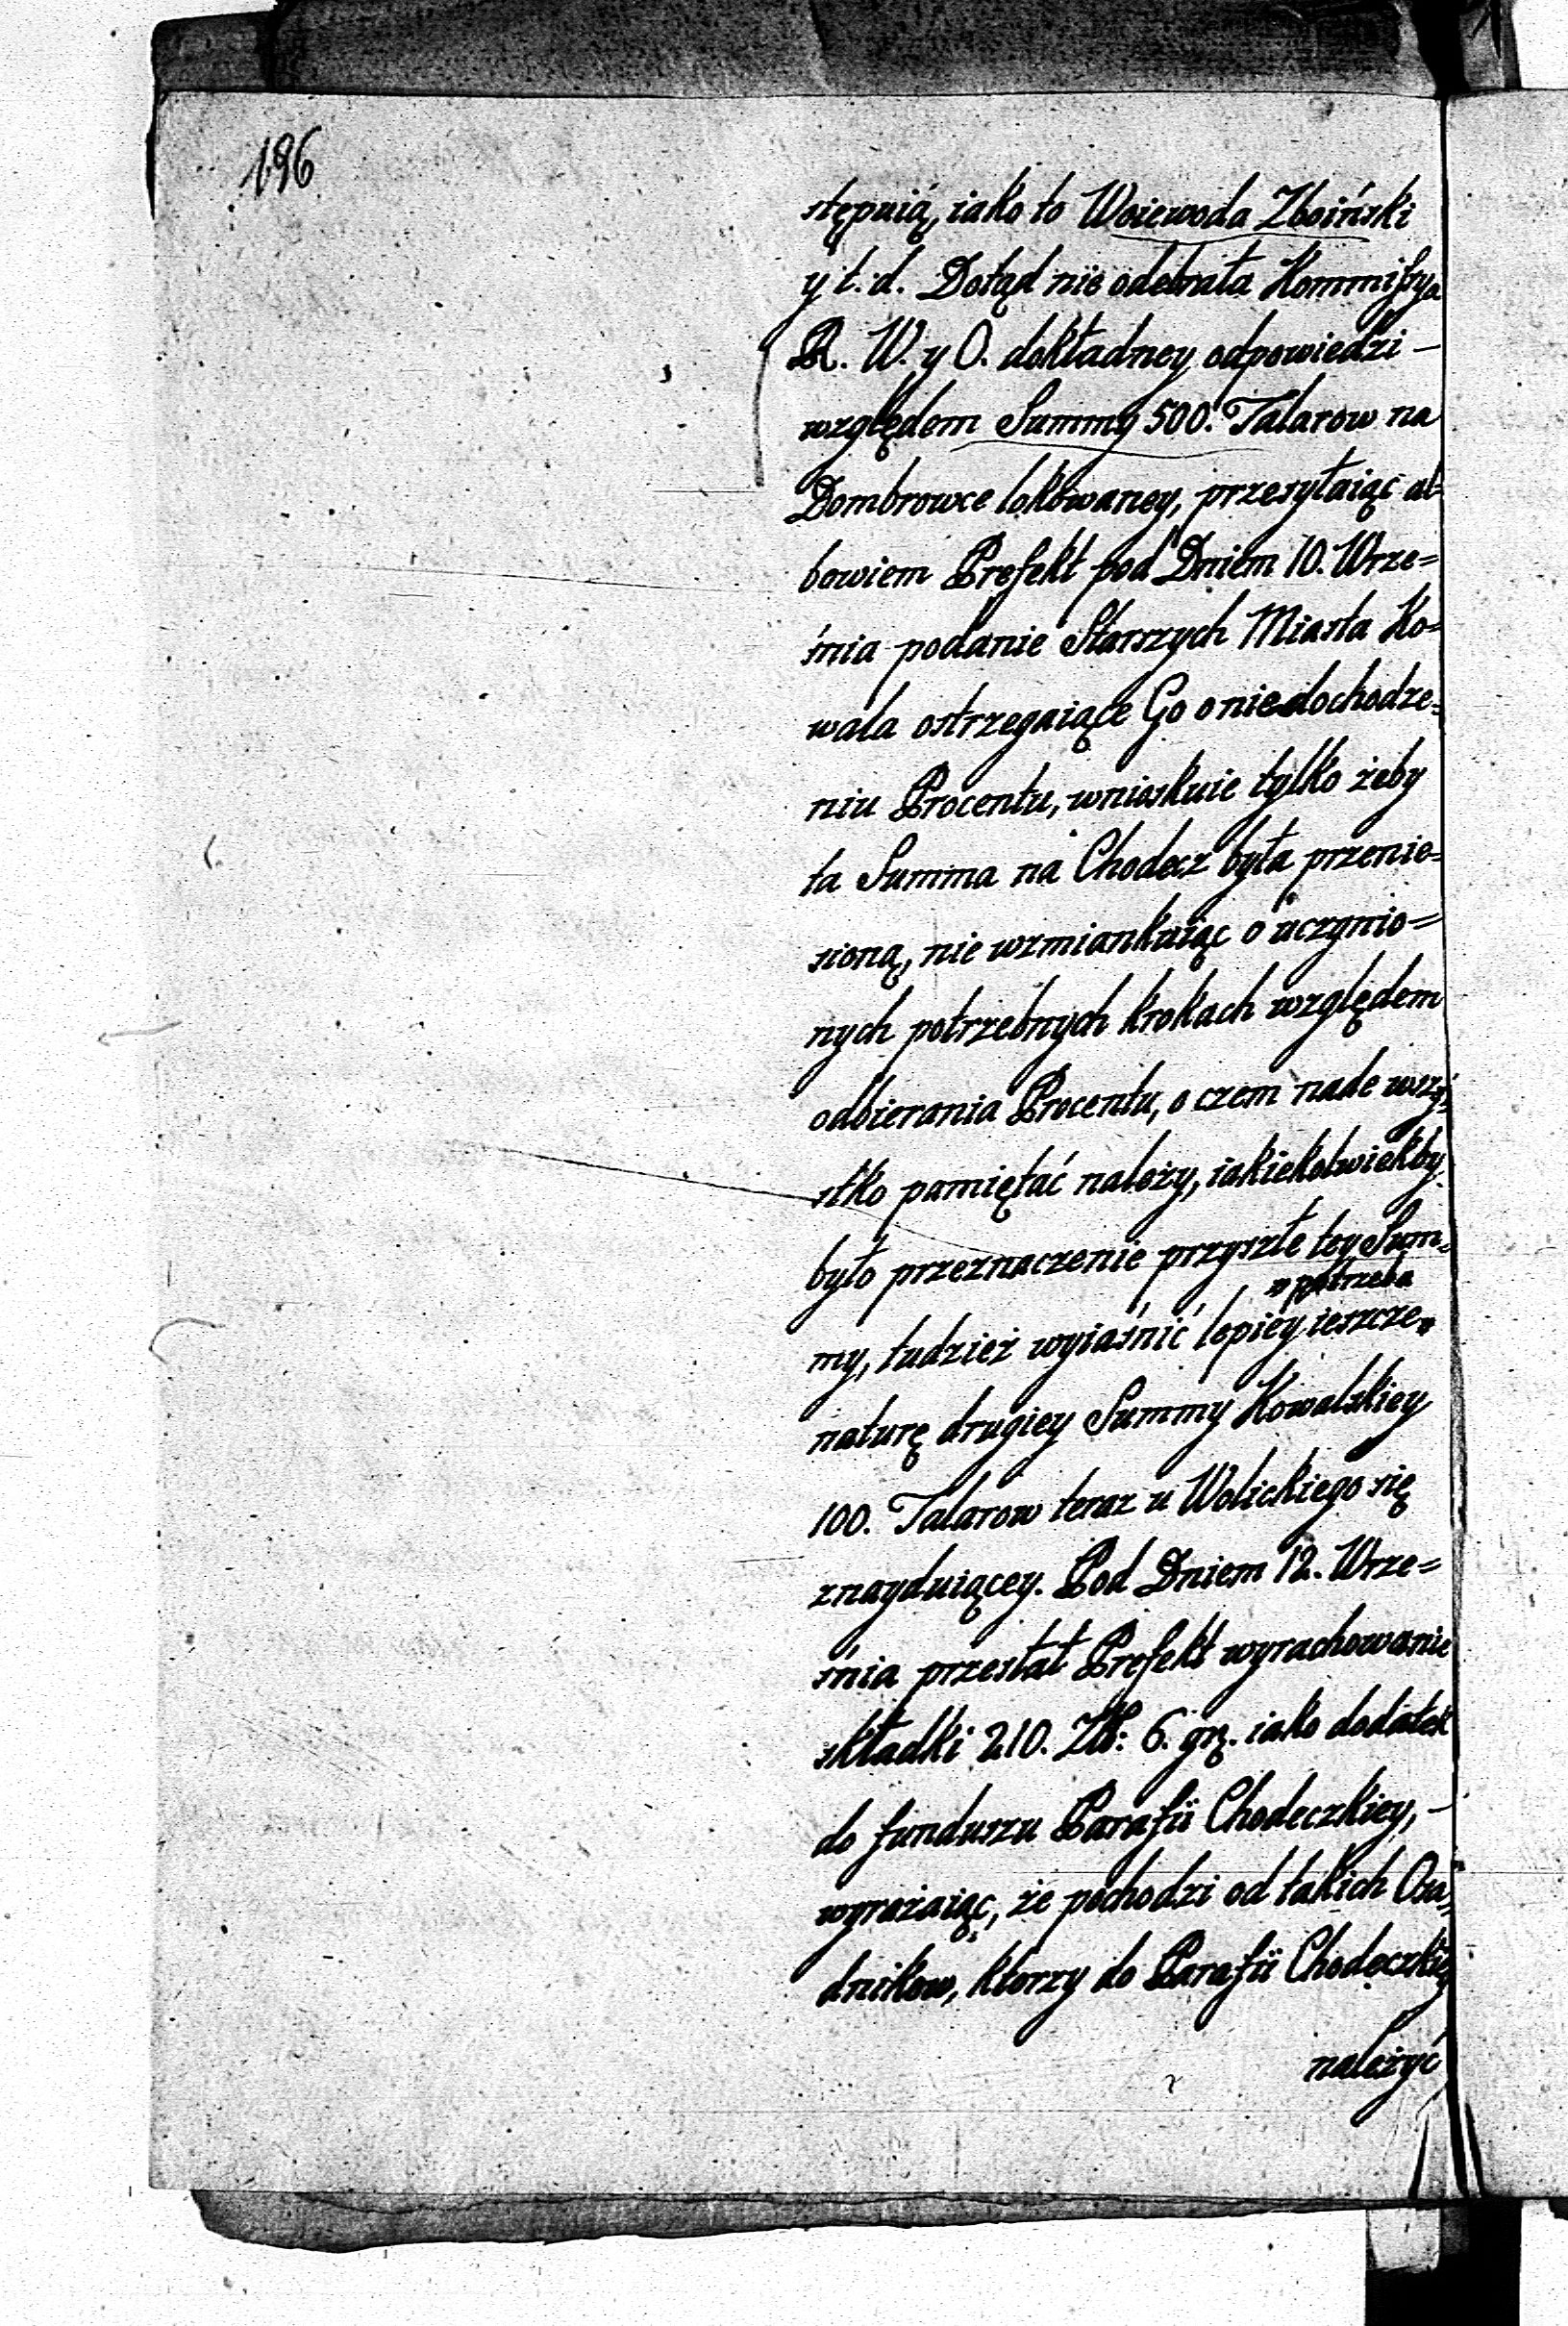 196
stępuią, iako to Woiewoda Zboiński
y t. d. Dotąd nie odebrała Kommissya
R. W. y O. dokładney odpowiedzi –
względem Summy 500. Talarow na
Dombrowce lokowaney, przesyłaiąc al-
bowiem Prefekt pod Dniem 10. Wrze=
śnia podanie Starszych Miasta Ko=
wala ostrzegaiące Go o niedochodze=
niu Procentu, wnioskuie tylko żeby
ta Summa na Chodecz była przenie=
sioną, nie wzmiankuiąc o uczynio=
nych potrzebnych krokach względem
odbierania Procentu, o czem nade wszy=
stko pamiętać należy, iakiekolwiekby
było przeznaczenie przyszłe tey Sum=
" potrzeba
my, tudzież wyiaśnić lepiey ieszcze "
naturę drugiey Summy Kowalskiey
100. Talarow teraz u Wolickiego się
znayduiącey. Pod Dniem 12. Wrze=
śnia przesłał Prefekt wyrachowanie
składki 210. Zł: 6. gr. iako dodatek
do funduszu Parafii Chodeczkiey, –
wyrażaiąc, że pochodzi od takich Osa=
dnikow, ktorzy do Parafii Chodeczkiey
należyć